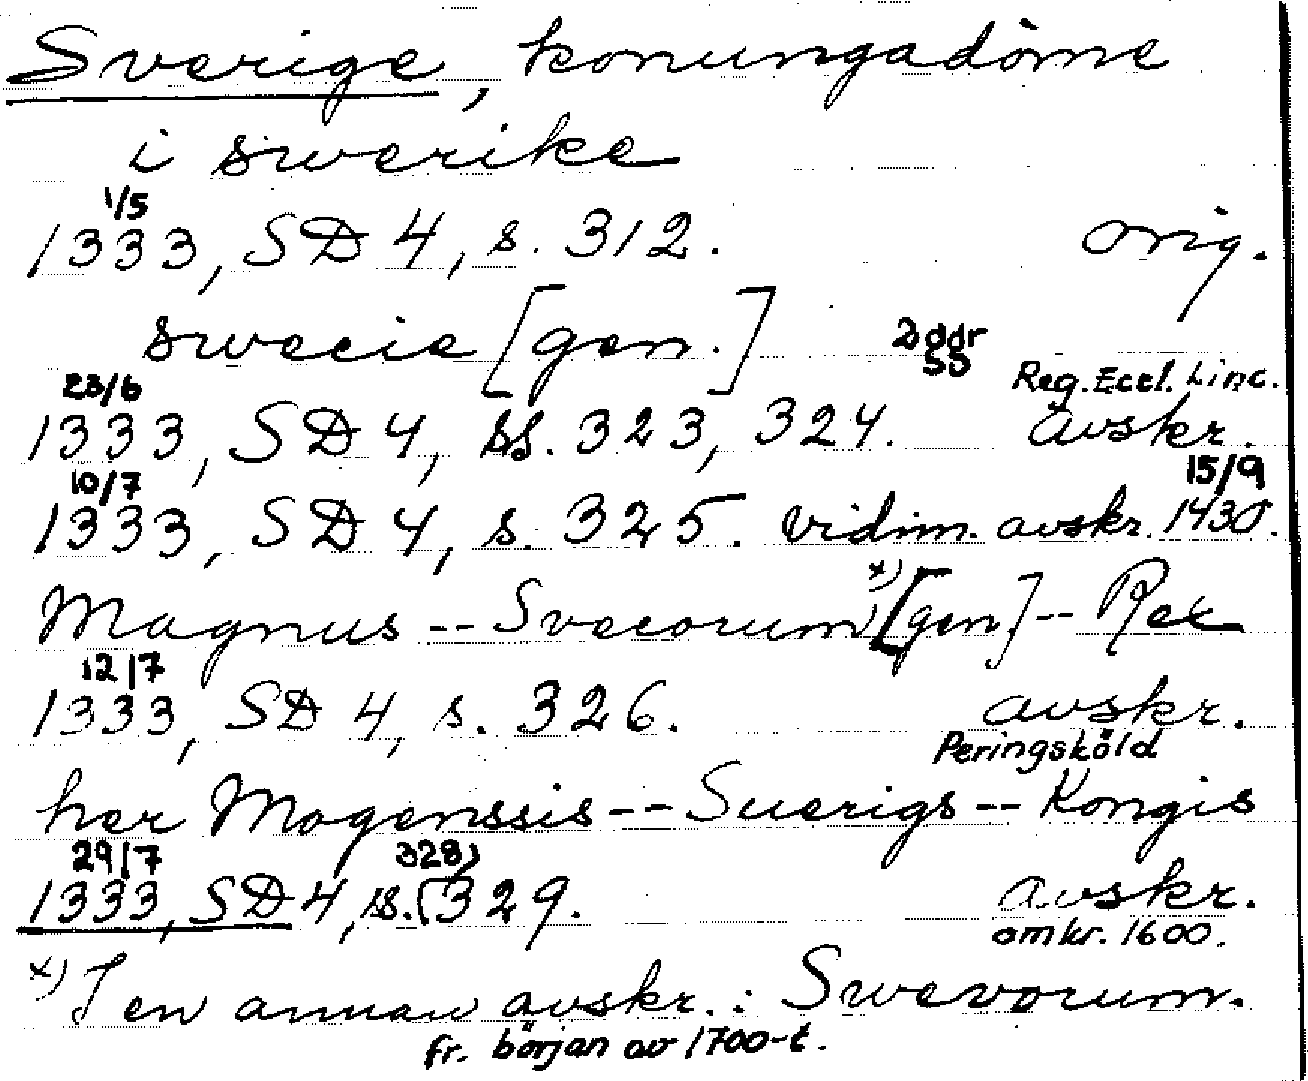 Sverige, konungadöme
i swerike
1/5
1333, SD 4, s. 312. orig.
swecie [gen.] 2 ggr
SS Reg. Eccl. Linc.
23/6
1333, SD 4, ss. 323, 324. avskr.
10/7 15/9
1333, SD 4, s. 325. vidim. avskr. 1430.
Magnus -- Svecorum x) [gen] -- Rex
12/7
1333, SD 4, s. 326. avskr.
Peringsköld
her Mogenssis -- Suerigs -- Kongis
29/7 328,
1333, SD 4, ss. 329. avskr.
omkr. 1600.
x) I en annan avskr.: Swevorum.
fr. början av 1700-t.